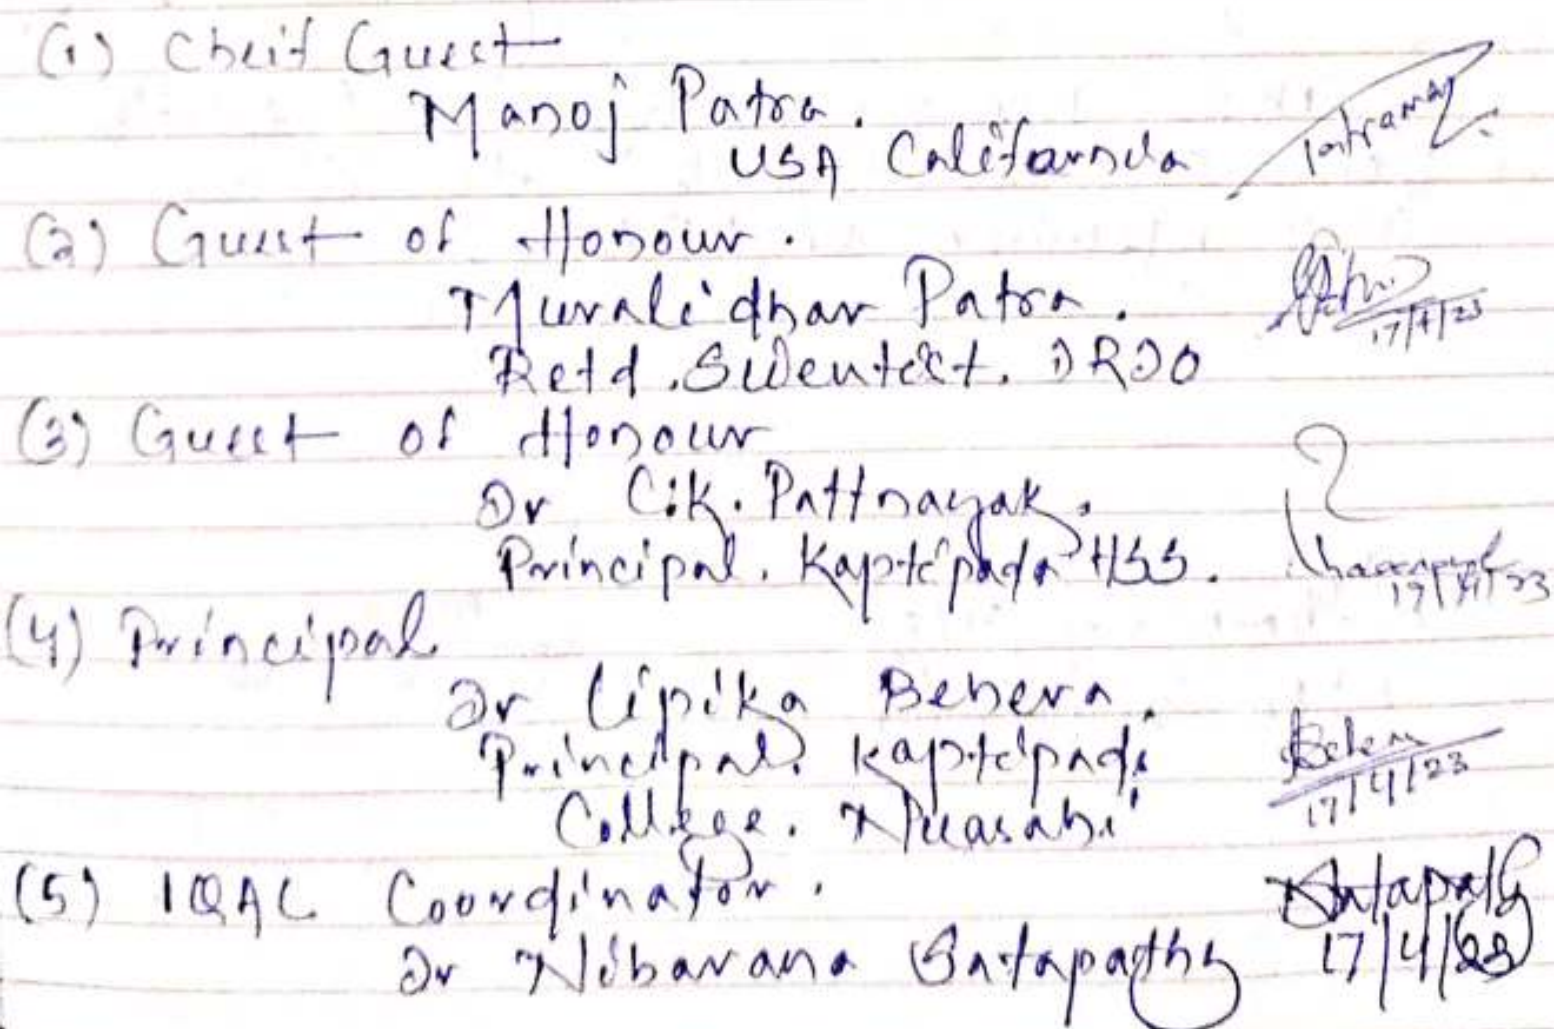 (1) Cheif Guest
Manoj Patra.
USA California
(2) Guest of Honour.
Muralidhar Patra.
17/4/23
Retd. Scientist. DRDO
(3) Guest of Honour
Dr C.K. Pattnayak.
Principal. Kaptipada HSS.
17/4/23
(4) Principal
Dr Lipika Behera.
Principal. Kaptipadi
Behera
17/4/23
College. Nuasahi
(5) IQAC Coordinator.
Satapathy
Dr Nibarana Satapathy
17/4/23